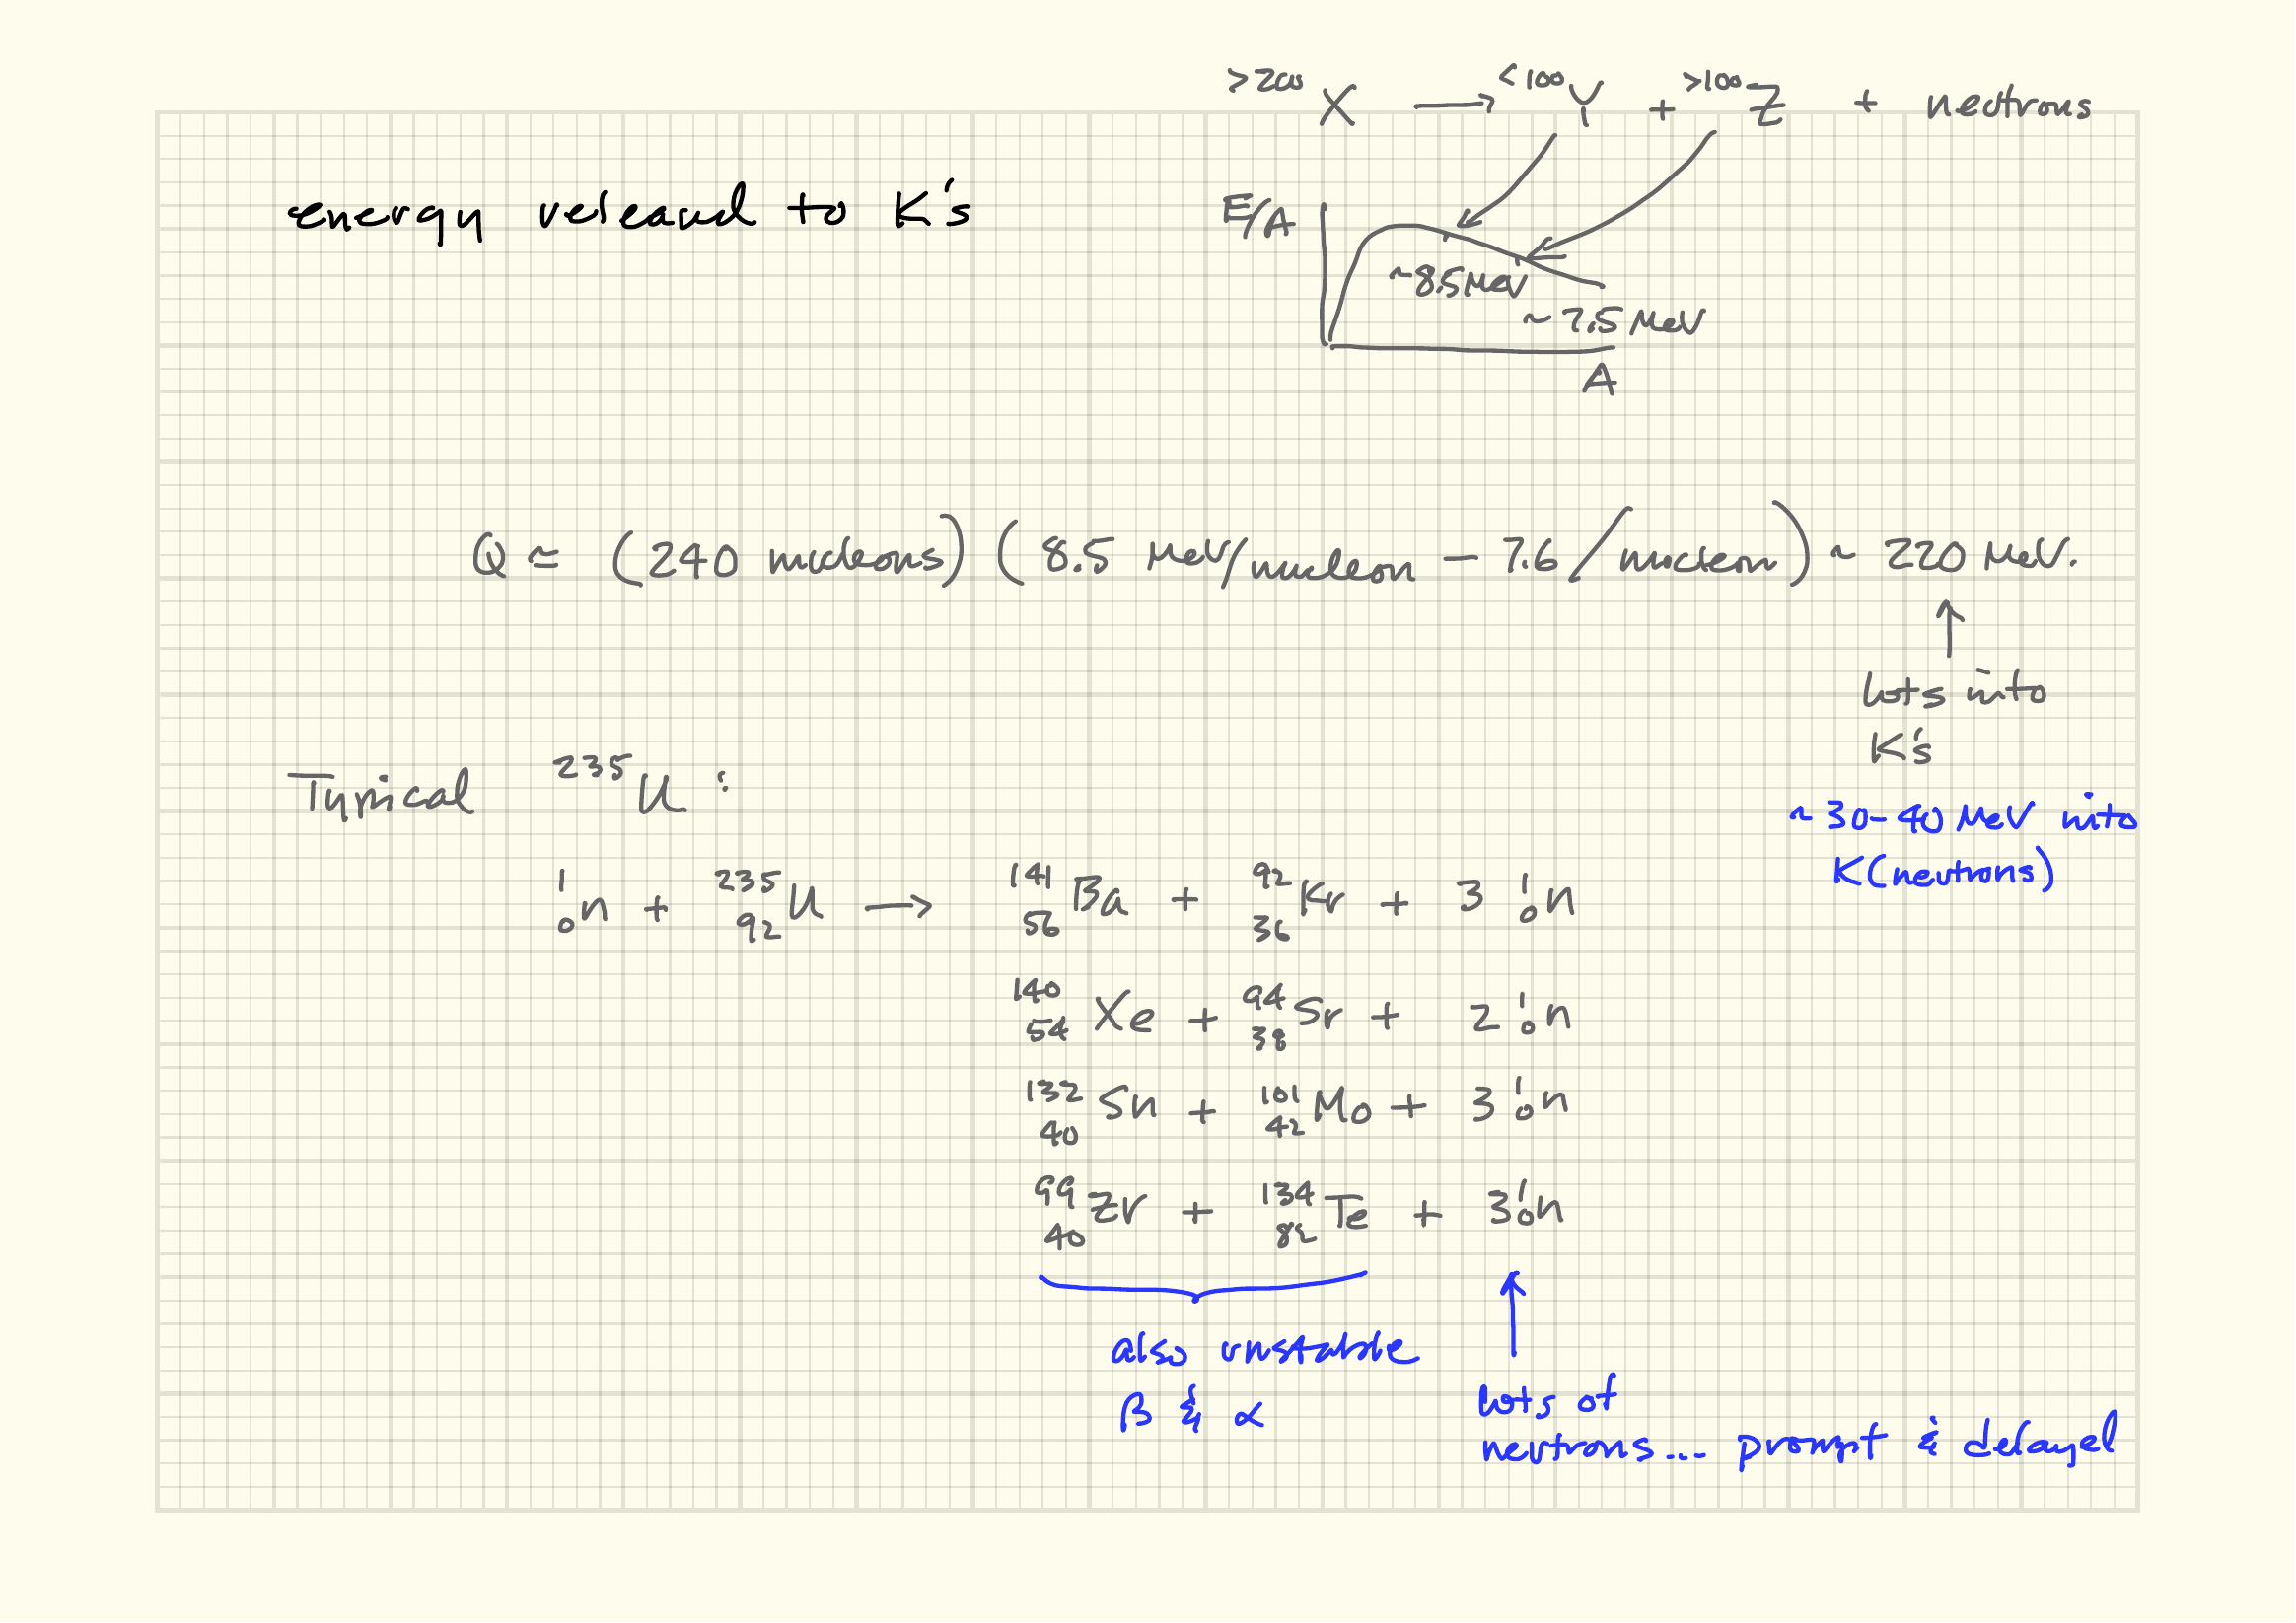 >200 X → <100 Y + >100 Z + neutrons
energy released to K's
E/A
~8.5 MeV
~7.5 MeV
A
Q ≃ (240 nucleons) (8.5 MeV/nucleon - 7.6/nucleon) ~ 220 MeV.
↑
lots into
K's
~30-40 MeV into
K(neutrons)
Typical ²³⁵U:
¹₀n + ²³⁵₉₂U → ¹⁴¹₅₆Ba + ⁹²₃₆Kr + 3 ¹₀n
¹⁴⁰₅₄Xe + ⁹⁴₃₈Sr + 2 ¹₀n
¹³²₄₀Sn + ¹⁰¹₄₂Mo + 3 ¹₀n
⁹⁹₄₀Zr + ¹³⁴₈₂Te + 3 ¹₀n
also unstable
β & α
↑
lots of
neutrons... prompt & delayed